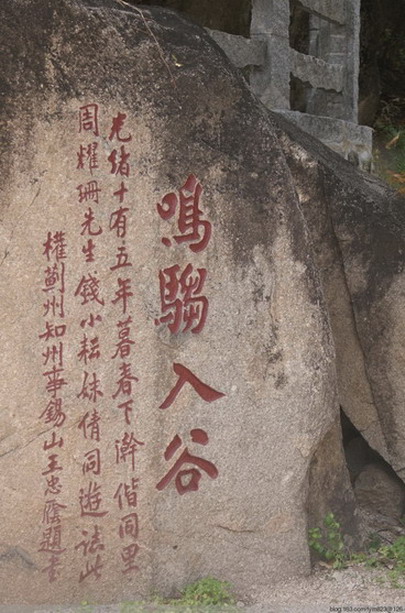 鳴騶入谷
光緒十有五年暮春下澣偕同里
周耀珊先生錢小耘妹倩同遊法此
權薊州知州事錫山王忠廕題書
blog.163.com/lym823@126